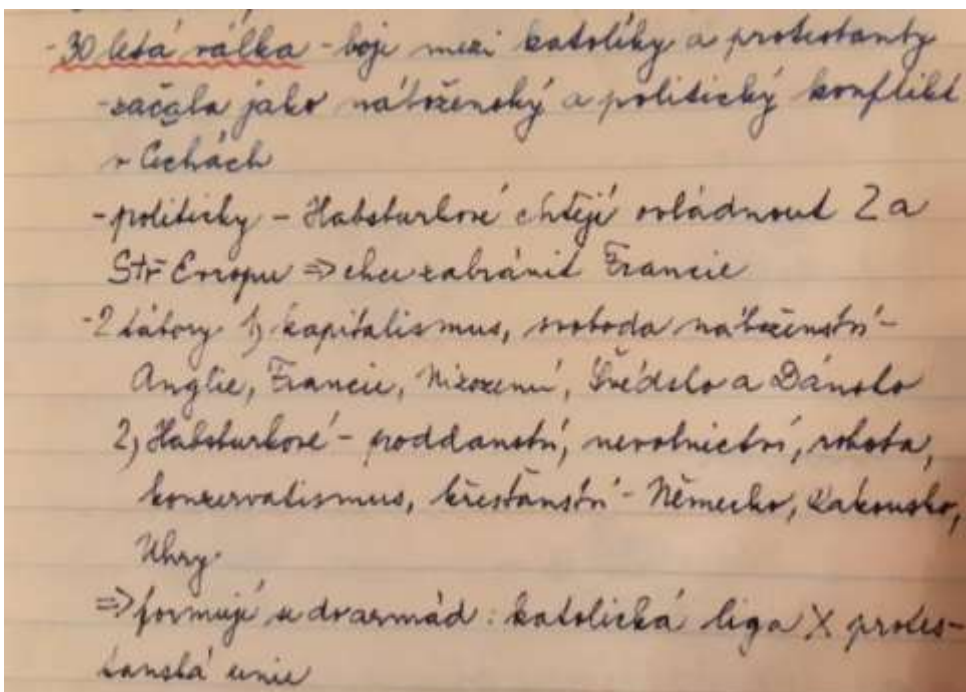 -30 letá válka - boje mezi katolíky a protestanty
-začala jako náboženský a politický konflikt
v Čechách
-politicky - Habsburkové chtějí ovládnout Z a
Stř Evropu ⇒ chce zabránit Francie
-2 tábory 1) kapitalismus, svoboda náboženství -
Anglie, Francie, Nizozemí, Švédsko a Dánsko
2) Habsburkové - poddanství, nevolnictví, robota,
konzervatismus, křesťanství - Německo, Rakousko,
Uhry.
⇒ formují se dvě armád: katolická liga X protes-
tanská unie